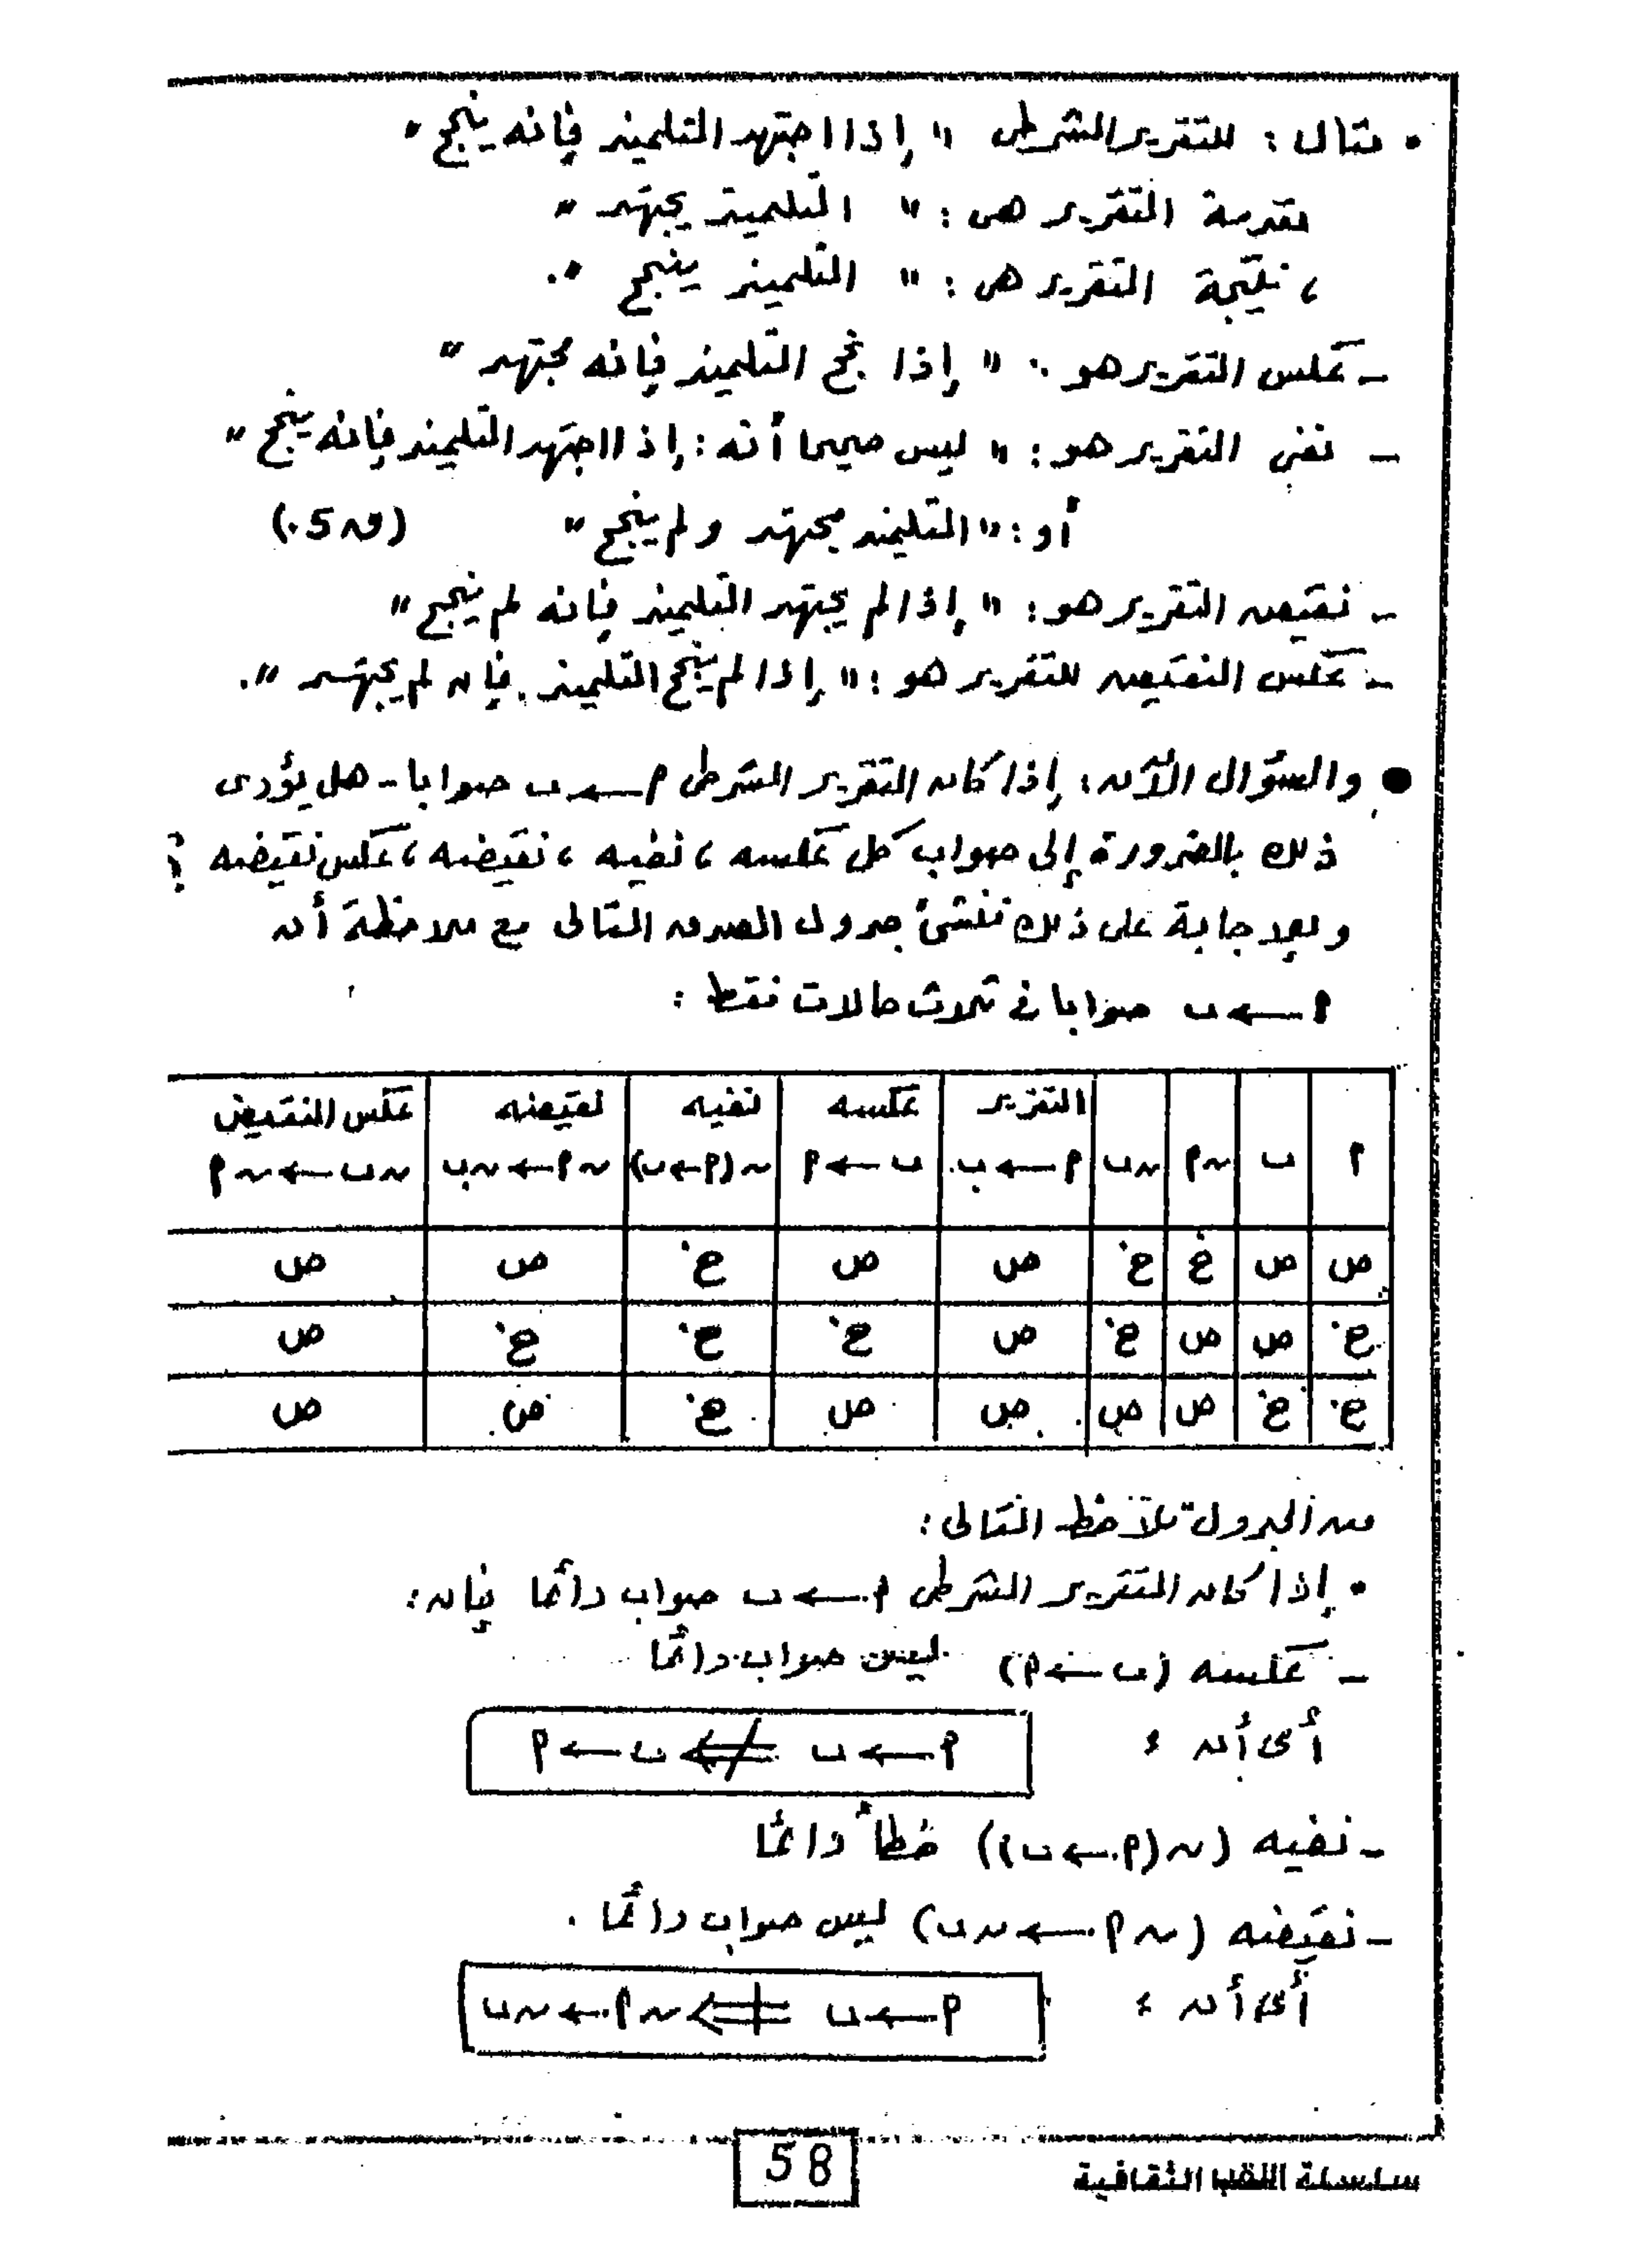 • مثال : للتقرير الشرطى " إذا اجتهد التلميذ فإنه ينجح "
مقدمة التقرير هى : " التلميذ يجتهد "
، نتيجة التقرير هى : " التلميذ ينجح " .
- عكس التقرير هو : " إذا نجح التلميذ فإنه مجتهد "
- نفى التقرير هو : " ليس صحيحا أنه : إذا اجتهد التلميذ فإنه ينجح "
أو : " التلميذ مجتهد ولم ينجح "
- نقيض التقرير هو : " إذا لم يجتهد التلميذ فإنه لم ينجح "
- عكس النقيض للتقرير هو : " إذا لم ينجح التلميذ فإن لم يجتهد " .
● والسؤال الآن : إذا كان التقرير الشرطى م ← ب صوابا - هل يؤدى
ذلك بالضرورة إلى صواب كل عكسه ، نفيه ، نقيضه ، عكس نقيضه ؟
وللإجابة على ذلك ننشئ جدول الصدق التالى مع ملاحظة أن
م ← ب صوابا فى ثلاث حالات فقط :
م | ب | ~م | ~ب | التقرير م ← ب | عكسه ب ← م | نفيه ~(م ← ب) | نقيضه ~م ← ~ب | عكس النقيض ~ب ← ~م
ص | ص | خ | خ | ص | ص | خ | ص | ص
خ | ص | ص | خ | ص | خ | خ | خ | ص
خ | خ | ص | ص | ص | ص | خ | ص | ص
من الجدول نلاحظ التالى :
• إذا كان التقرير الشرطى م ← ب صواب دائما فإن :
- عكسه (ب ← م) ليس صواب دائما
أى أن : م ← ب ⇍ ب ← م
- نفيه (~(م ← ب)) خطأ دائما
- نقيضه (~م ← ~ب) ليس صواب دائما .
أى أن : م ← ب ⇍ ~م ← ~ب
58
سلسلة اللقب الثقافية